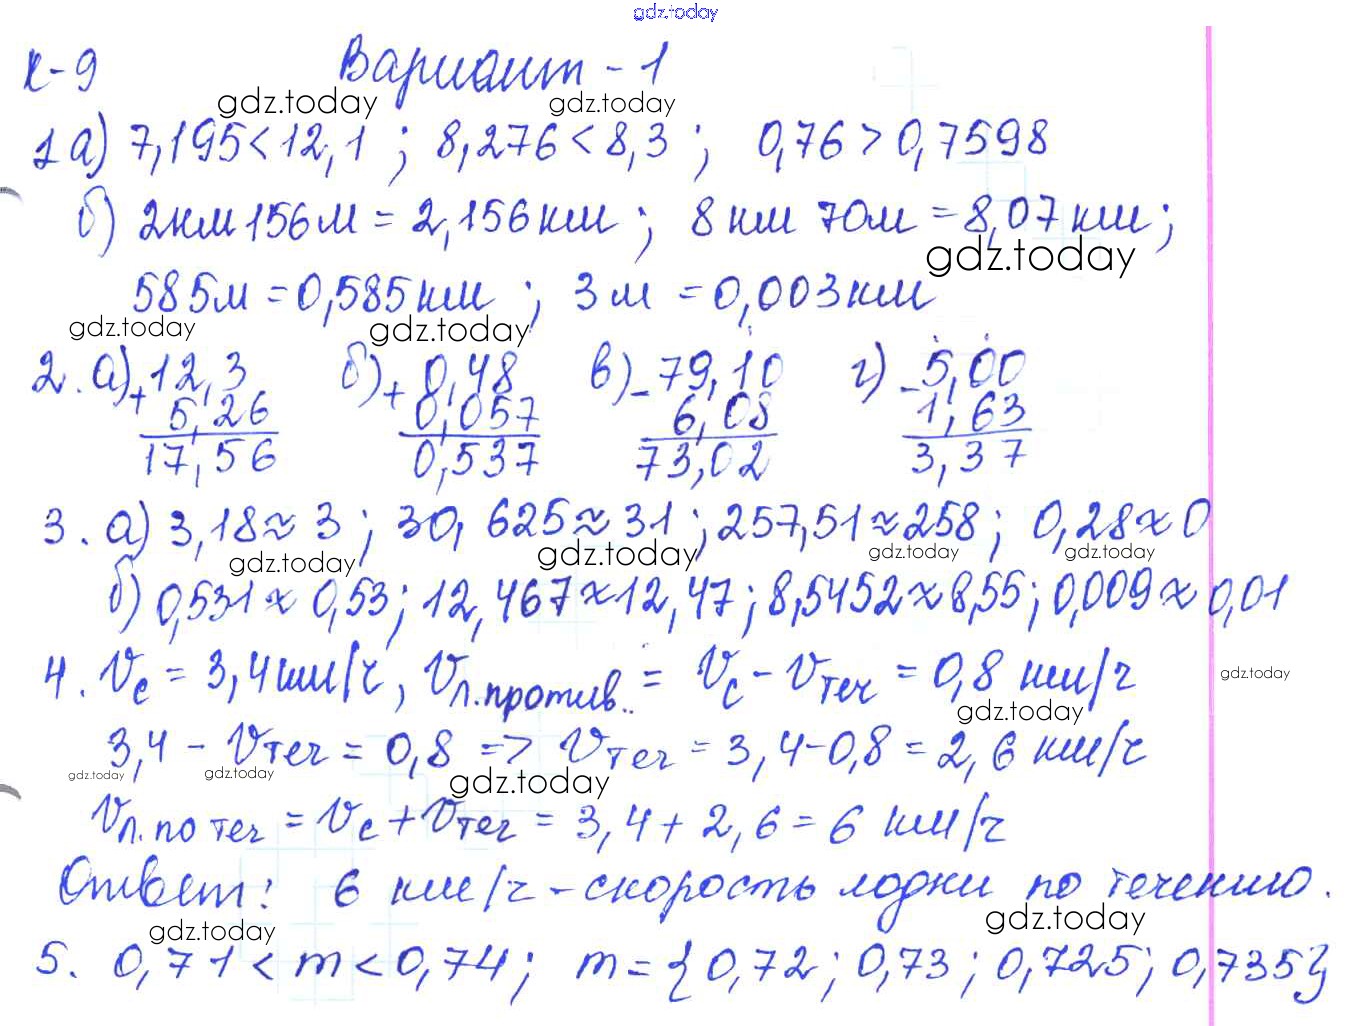 gdz.today
К-9 Вариант - 1
gdz.today gdz.today
1 а) 7,195 < 12,1 ; 8,276 < 8,3 ; 0,76 > 0,7598
б) 2км 156 м = 2,156 км ; 8 км 70м = 8,07 км ;
gdz.today
585м = 0,585 км ; 3 м = 0,003 км
gdz.today gdz.today
2. а) + 12,3 б) + 0,48 в) - 79,10 г) - 5,00
5,26 0,057 6,08 1,63
17,56 0,537 73,02 3,37
3. а) 3,18 ≈ 3 ; 30,625 ≈ 31 ; 257,51 ≈ 258 ; 0,28 ≈ 0
gdz.today gdz.today gdz.today gdz.today
б) 0,531 ≈ 0,53 ; 12,467 ≈ 12,47 ; 8,5452 ≈ 8,55 ; 0,009 ≈ 0,01
4. Vс = 3,4 км/ч, Vл.против. = Vс - Vтеч = 0,8 км/ч
gdz.today
gdz.today
3,4 - Vтеч = 0,8 => Vтеч = 3,4 - 0,8 = 2,6 км/ч
gdz.today gdz.today gdz.today
Vл. по теч = Vс + Vтеч = 3,4 + 2,6 = 6 км/ч
Ответ: 6 км/ч - скорость лодки по течению.
gdz.today gdz.today
5. 0,71 < m < 0,74 ; m = {0,72 ; 0,73 ; 0,725 ; 0,735}